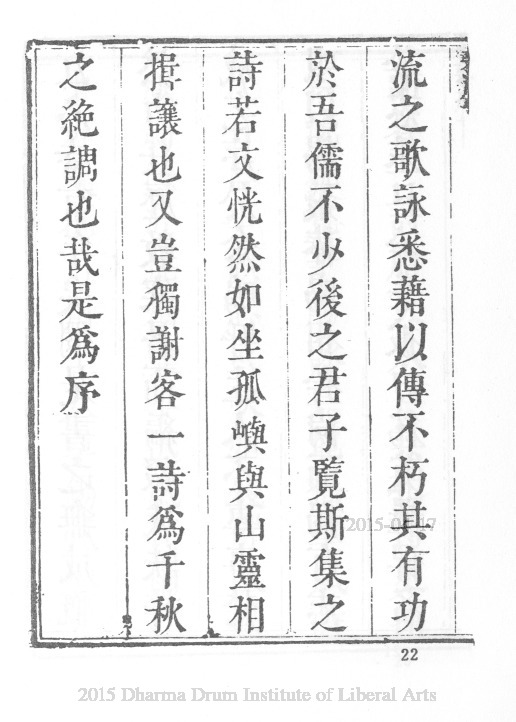 流之歌詠悉藉以傳不朽其有功
於吾儒不少後之君子覽斯集之
詩若文恍然如坐孤嶼與山靈相
揖讓也又豈獨謝客一詩爲千秋
之絶調也哉是爲序
22
2015-04-17
2015 Dharma Drum Institute of Liberal Arts